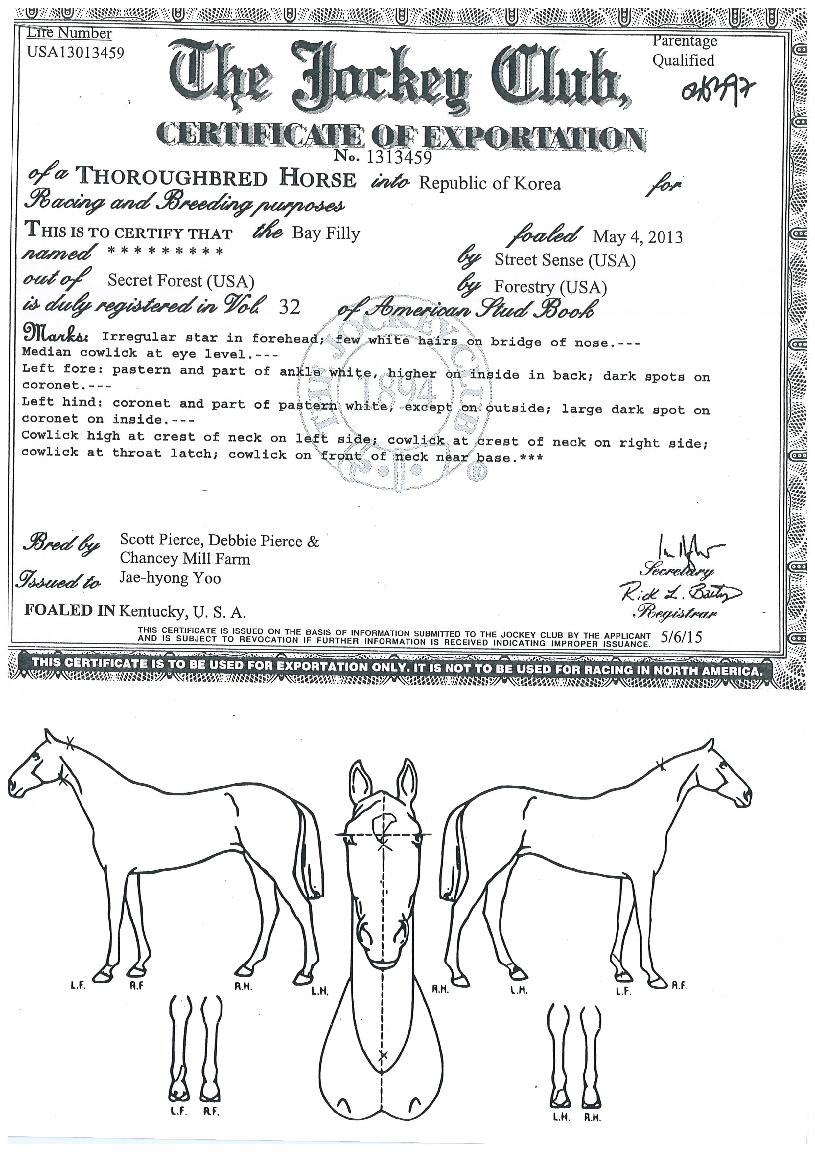 Life Number
USA13013459
Parentage
Qualified
The Jockey Club,
CERTIFICATE OF EXPORTATION
No. 1313459
of a THOROUGHBRED HORSE into Republic of Korea for
Racing and Breeding purposes
THIS IS TO CERTIFY THAT the Bay Filly foaled May 4, 2013
named * * * * * * * * * by Street Sense (USA)
out of Secret Forest (USA) by Forestry (USA)
is duly registered in Vol. 32 of American Stud Book
Marks: Irregular star in forehead; few white hairs on bridge of nose.---
Median cowlick at eye level.---
Left fore: pastern and part of ankle white, higher on inside in back; dark spots on
coronet.---
Left hind: coronet and part of pastern white, except on outside; large dark spot on
coronet on inside.---
Cowlick high at crest of neck on left side; cowlick at crest of neck on right side;
cowlick at throat latch; cowlick on front of neck near base.***
THE JOCKEY CLUB
1894
®
Bred by Scott Pierce, Debbie Pierce &
Chancey Mill Farm
Issued to Jae-hyong Yoo
Secretary
Rick L. Bailey
Registrar
FOALED IN Kentucky, U. S. A.
THIS CERTIFICATE IS ISSUED ON THE BASIS OF INFORMATION SUBMITTED TO THE JOCKEY CLUB BY THE APPLICANT
AND IS SUBJECT TO REVOCATION IF FURTHER INFORMATION IS RECEIVED INDICATING IMPROPER ISSUANCE. 5/6/15
THIS CERTIFICATE IS TO BE USED FOR EXPORTATION ONLY. IT IS NOT TO BE USED FOR RACING IN NORTH AMERICA.
L.F. R.F R.H. L.H. R.H. L.H. L.F. R.F.
L.F. R.F. L.H. R.H.